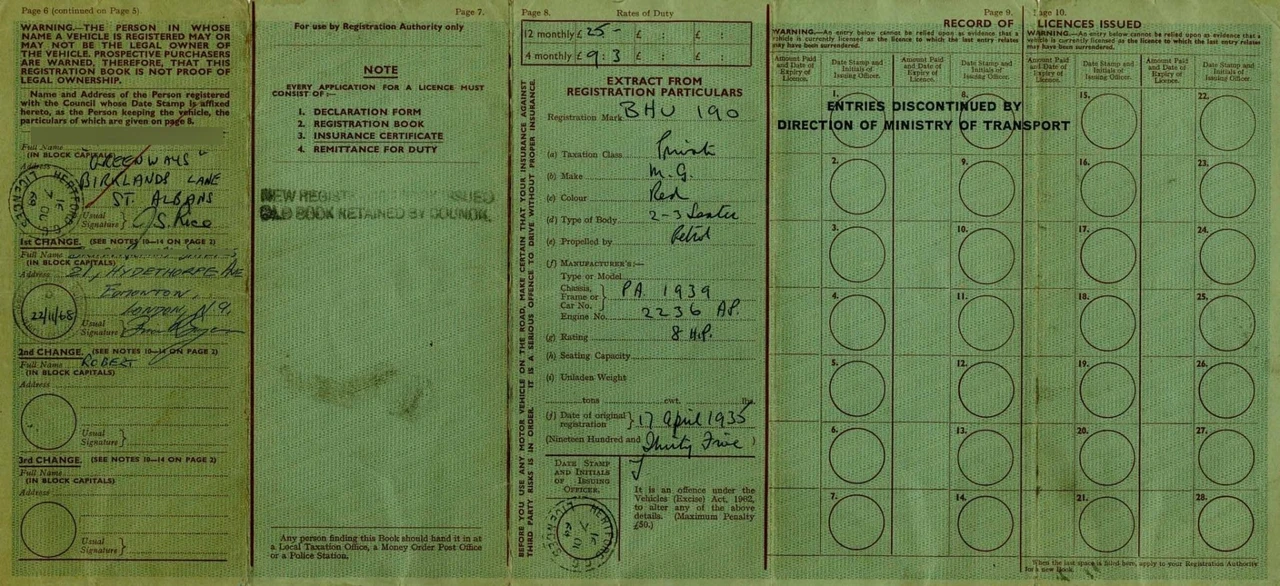 Page 6 (continued on Page 5)
WARNING.—THE PERSON IN WHOSE
NAME A VEHICLE IS REGISTERED MAY OR
MAY NOT BE THE LEGAL OWNER OF
THE VEHICLE. PROSPECTIVE PURCHASERS
ARE WARNED, THEREFORE, THAT THIS
REGISTRATION BOOK IS NOT PROOF OF
LEGAL OWNERSHIP.
Name and Address of the Person registered
with the Council whose Date Stamp is affixed
hereto, as the Person keeping the vehicle, the
particulars of which are given on page 8.
Full Name
(IN BLOCK CAPITALS)
Address "GREENWAYS"
BIRKLANDS LANE
ST. ALBANS
Usual
Signature } J S Rice
HERTFORD C.C.
LICENCES
1st CHANGE. (SEE NOTES 10—14 ON PAGE 2)
Full Name
(IN BLOCK CAPITALS)
Address 21, HYDETHORPE AVE
EDMONTON,
LONDON, N.9.
22/11/68
Usual
Signature }
2nd CHANGE. (SEE NOTES 10—14 ON PAGE 2)
Full Name ROBERT
(IN BLOCK CAPITALS)
Address
Usual
Signature }
3rd CHANGE. (SEE NOTES 10—14 ON PAGE 2)
Full Name
(IN BLOCK CAPITALS)
Address
Usual
Signature }
Page 7.
For use by Registration Authority only
NOTE
EVERY APPLICATION FOR A LICENCE MUST
CONSIST OF :—
1. DECLARATION FORM
2. REGISTRATION BOOK
3. INSURANCE CERTIFICATE
4. REMITTANCE FOR DUTY
NEW REGIST ISSUED
OLD BOOK RETAINED BY COUNCIL
Any person finding this Book should hand it in at
a Local Taxation Office, a Money Order Post Office
or a Police Station.
Page 8. Rates of Duty
12 monthly £ 25 - £ : £ :
4 monthly £ 9 : 3 £ : £ :
BEFORE YOU USE ANY MOTOR VEHICLE ON THE ROAD, MAKE CERTAIN THAT YOUR INSURANCE AGAINST
THIRD PARTY RISKS IS IN ORDER. IT IS A SERIOUS OFFENCE TO DRIVE WITHOUT PROPER INSURANCE.
EXTRACT FROM
REGISTRATION PARTICULARS
Registration Mark BHU 190
(a) Taxation Class Private
(b) Make M.G.
(c) Colour Red
(d) Type of Body 2-3 Seater
(e) Propelled by Petrol
(f) MANUFACTURER'S:—
Type or Model
Chassis,
Frame or
Car No. } PA 1939
Engine No. 2236 AP.
(g) Rating 8 H.P.
(h) Seating Capacity
(i) Unladen Weight
tons cwt. lbs.
(j) Date of original
registration } 17 April 1935
(Nineteen Hundred and Thirty Five )
DATE STAMP
AND INITIALS
OF ISSUING
OFFICER.
HERTFORD C.C.
LICENCES
It is an offence under the
Vehicles (Excise) Act, 1962,
to alter any of the above
details. (Maximum Penalty
£50.)
Page 9.
RECORD OF
WARNING.—An entry below cannot be relied upon as evidence that a
vehicle is currently licensed as the licence to which the last entry relates
may have been surrendered.
Amount Paid and Date of Expiry of Licence.
Date Stamp and Initials of Issuing Officer.
Amount Paid and Date of Expiry of Licence.
Date Stamp and Initials of Issuing Officer.
1. 8.
2. 9.
3. 10.
4. 11.
5. 12.
6. 13.
7. 14.
ENTRIES DISCONTINUED BY
DIRECTION OF MINISTRY OF TRANSPORT
Page 10.
LICENCES ISSUED
WARNING.—An entry below cannot be relied upon as evidence that a
vehicle is currently licensed as the licence to which the last entry relates
may have been surrendered.
Amount Paid and Date of Expiry of Licence.
Date Stamp and Initials of Issuing Officer.
Amount Paid and Date of Expiry of Licence.
Date Stamp and Initials of Issuing Officer.
15. 22.
16. 23.
17. 24.
18. 25.
19. 26.
20. 27.
21. 28.
When the last space is filled here, apply to your Registration Authority
for a new Book.